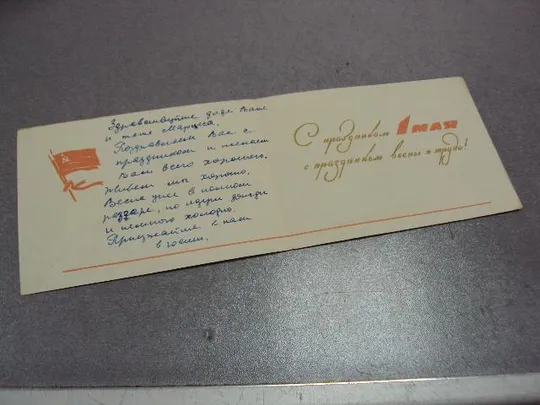 Здравствуйте дядя Ваня
и тетя Маруся.
Поздравляем Вас с
праздником и желаем
Вам всего хорошего.
Живем мы хорошо.
Весна уже в полном
разгаре, но идут дожди
и немного холодно.
Приезжайте к нам
в гости.
С праздником 1 МАЯ
с праздником весны и труда!